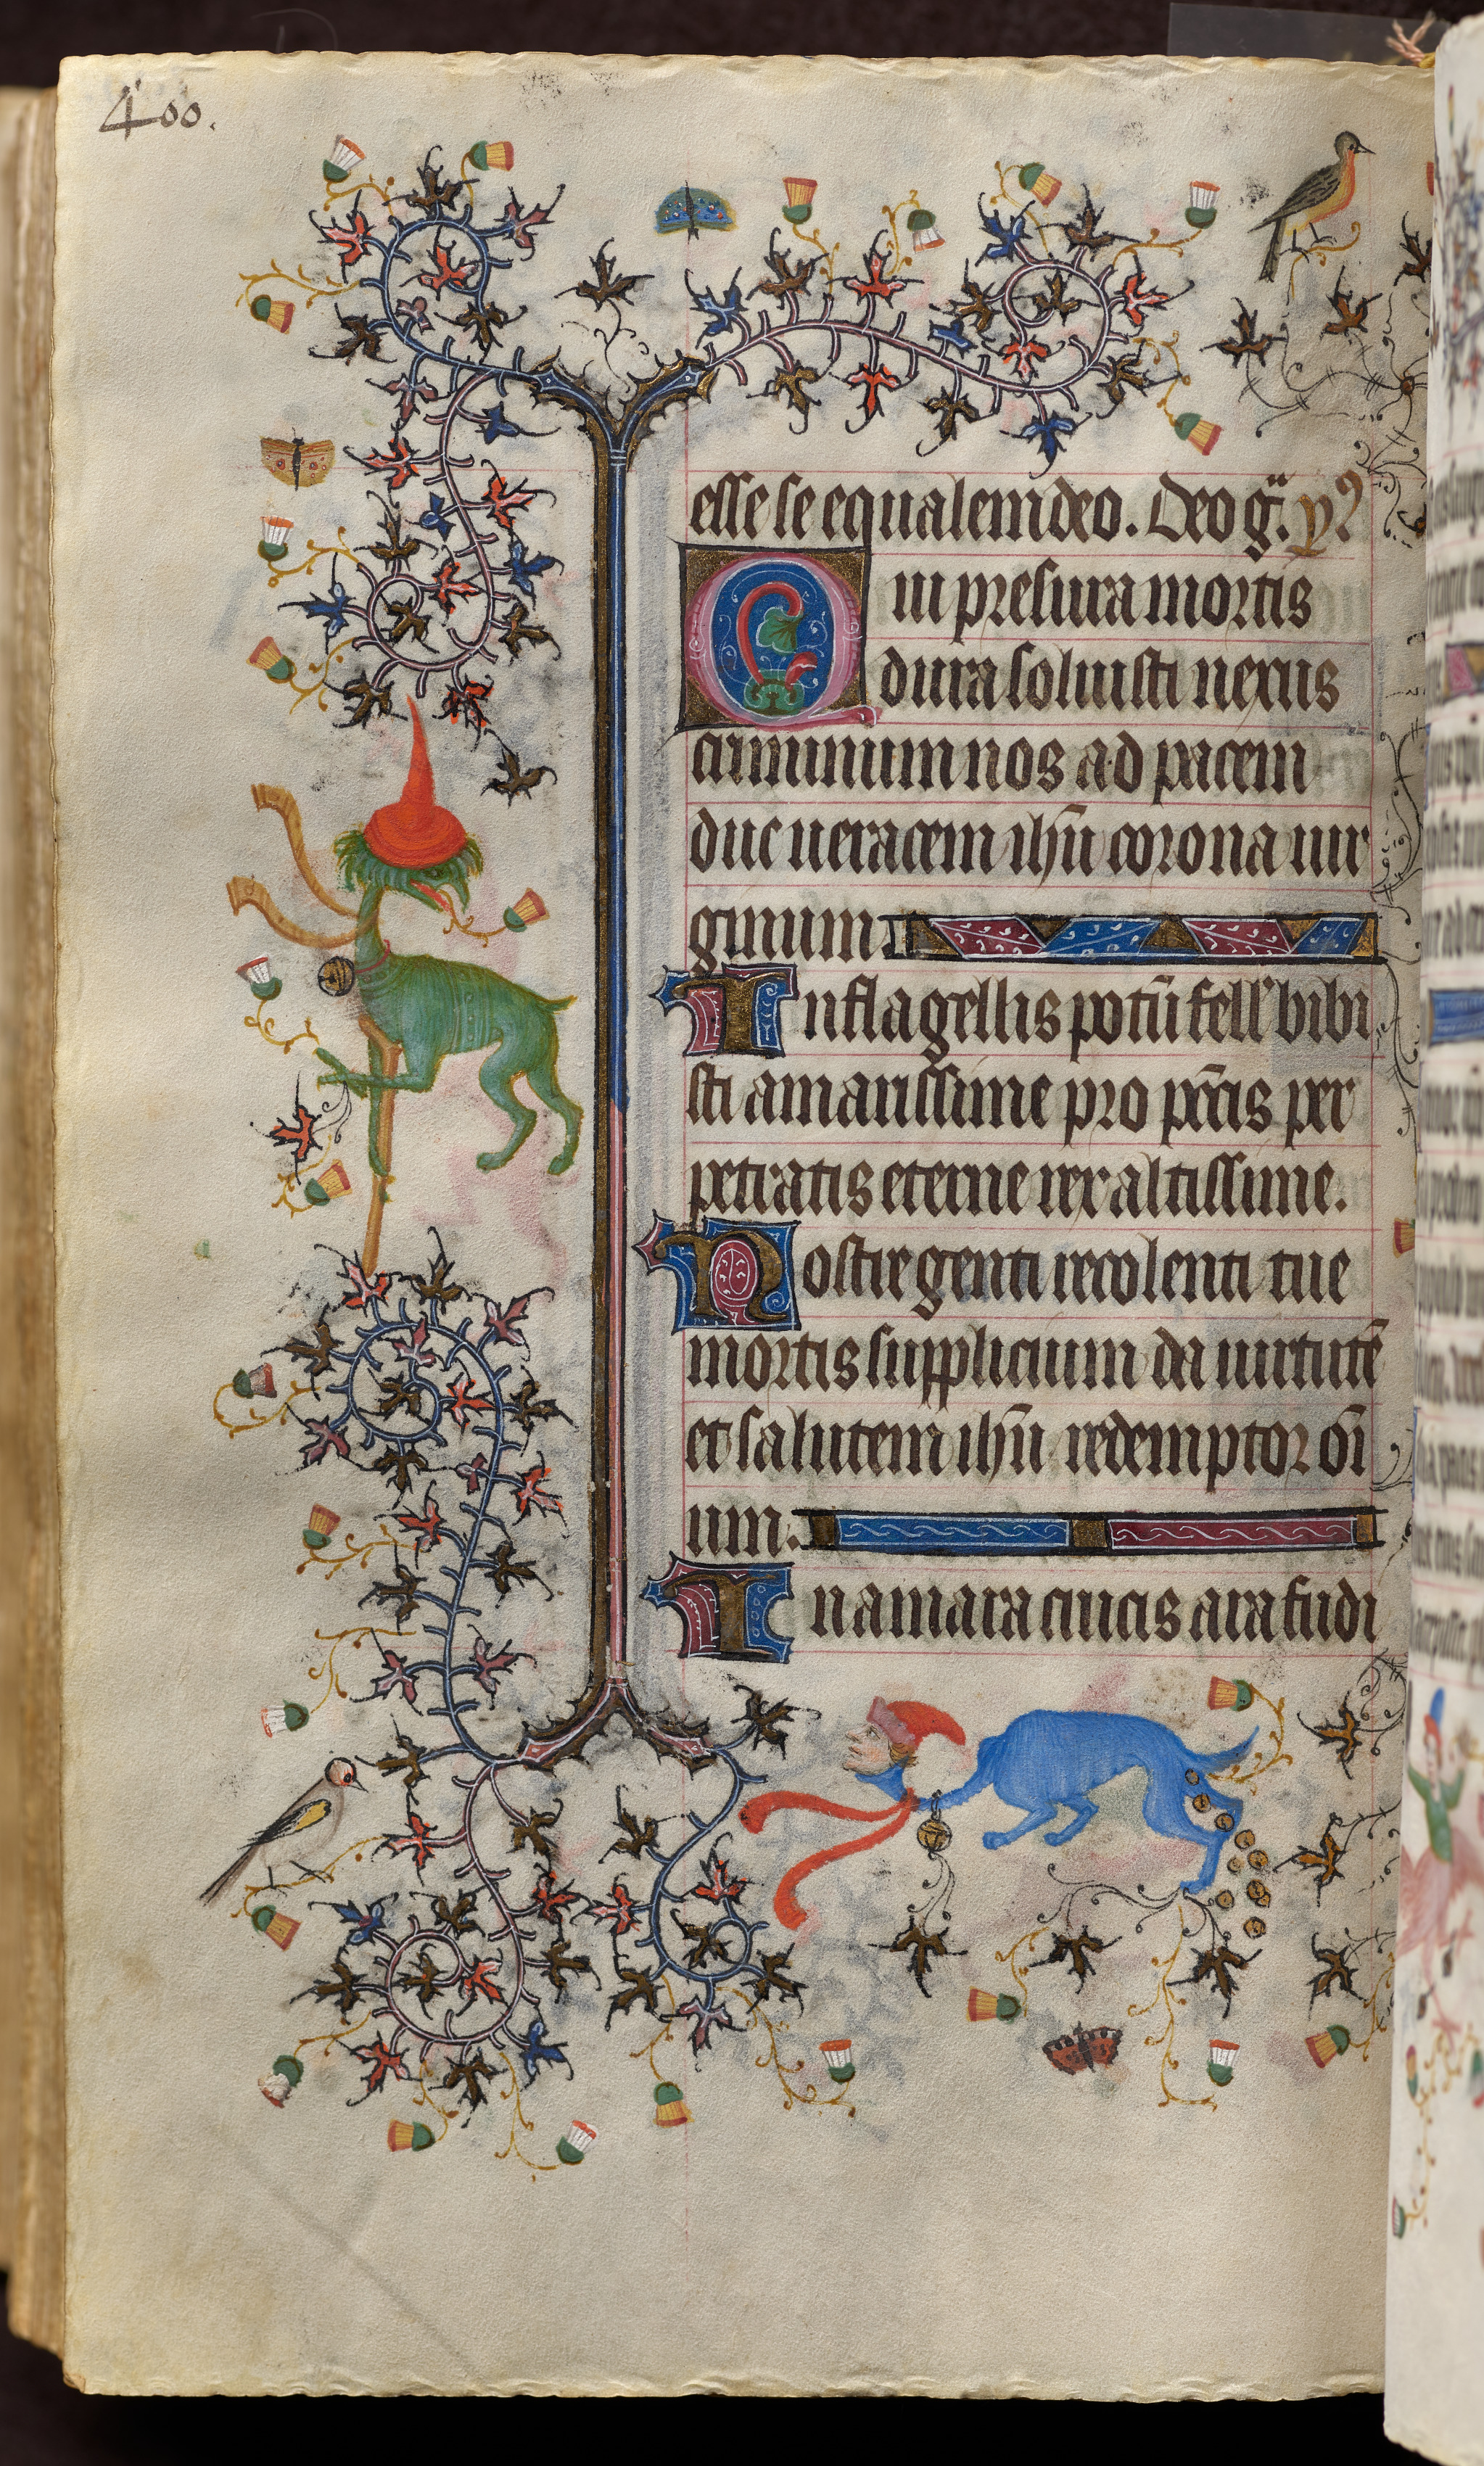 400.
esse se equalem deo. Deo gͣ. ymꝰ
Qui presura mortis
dura soluisti nexus
criminum nos ad pacem
duc ueracem ihū corona uir
ginum.
In flagellis potū fell' bibi
sti amarissime pro pctis per
petratis eterne rex altissime.
Nostre genti recolenti tue
mortis supplicium da uirtutē
et salutem ihū redemptor oī
um.
In amara crucis ara fudi